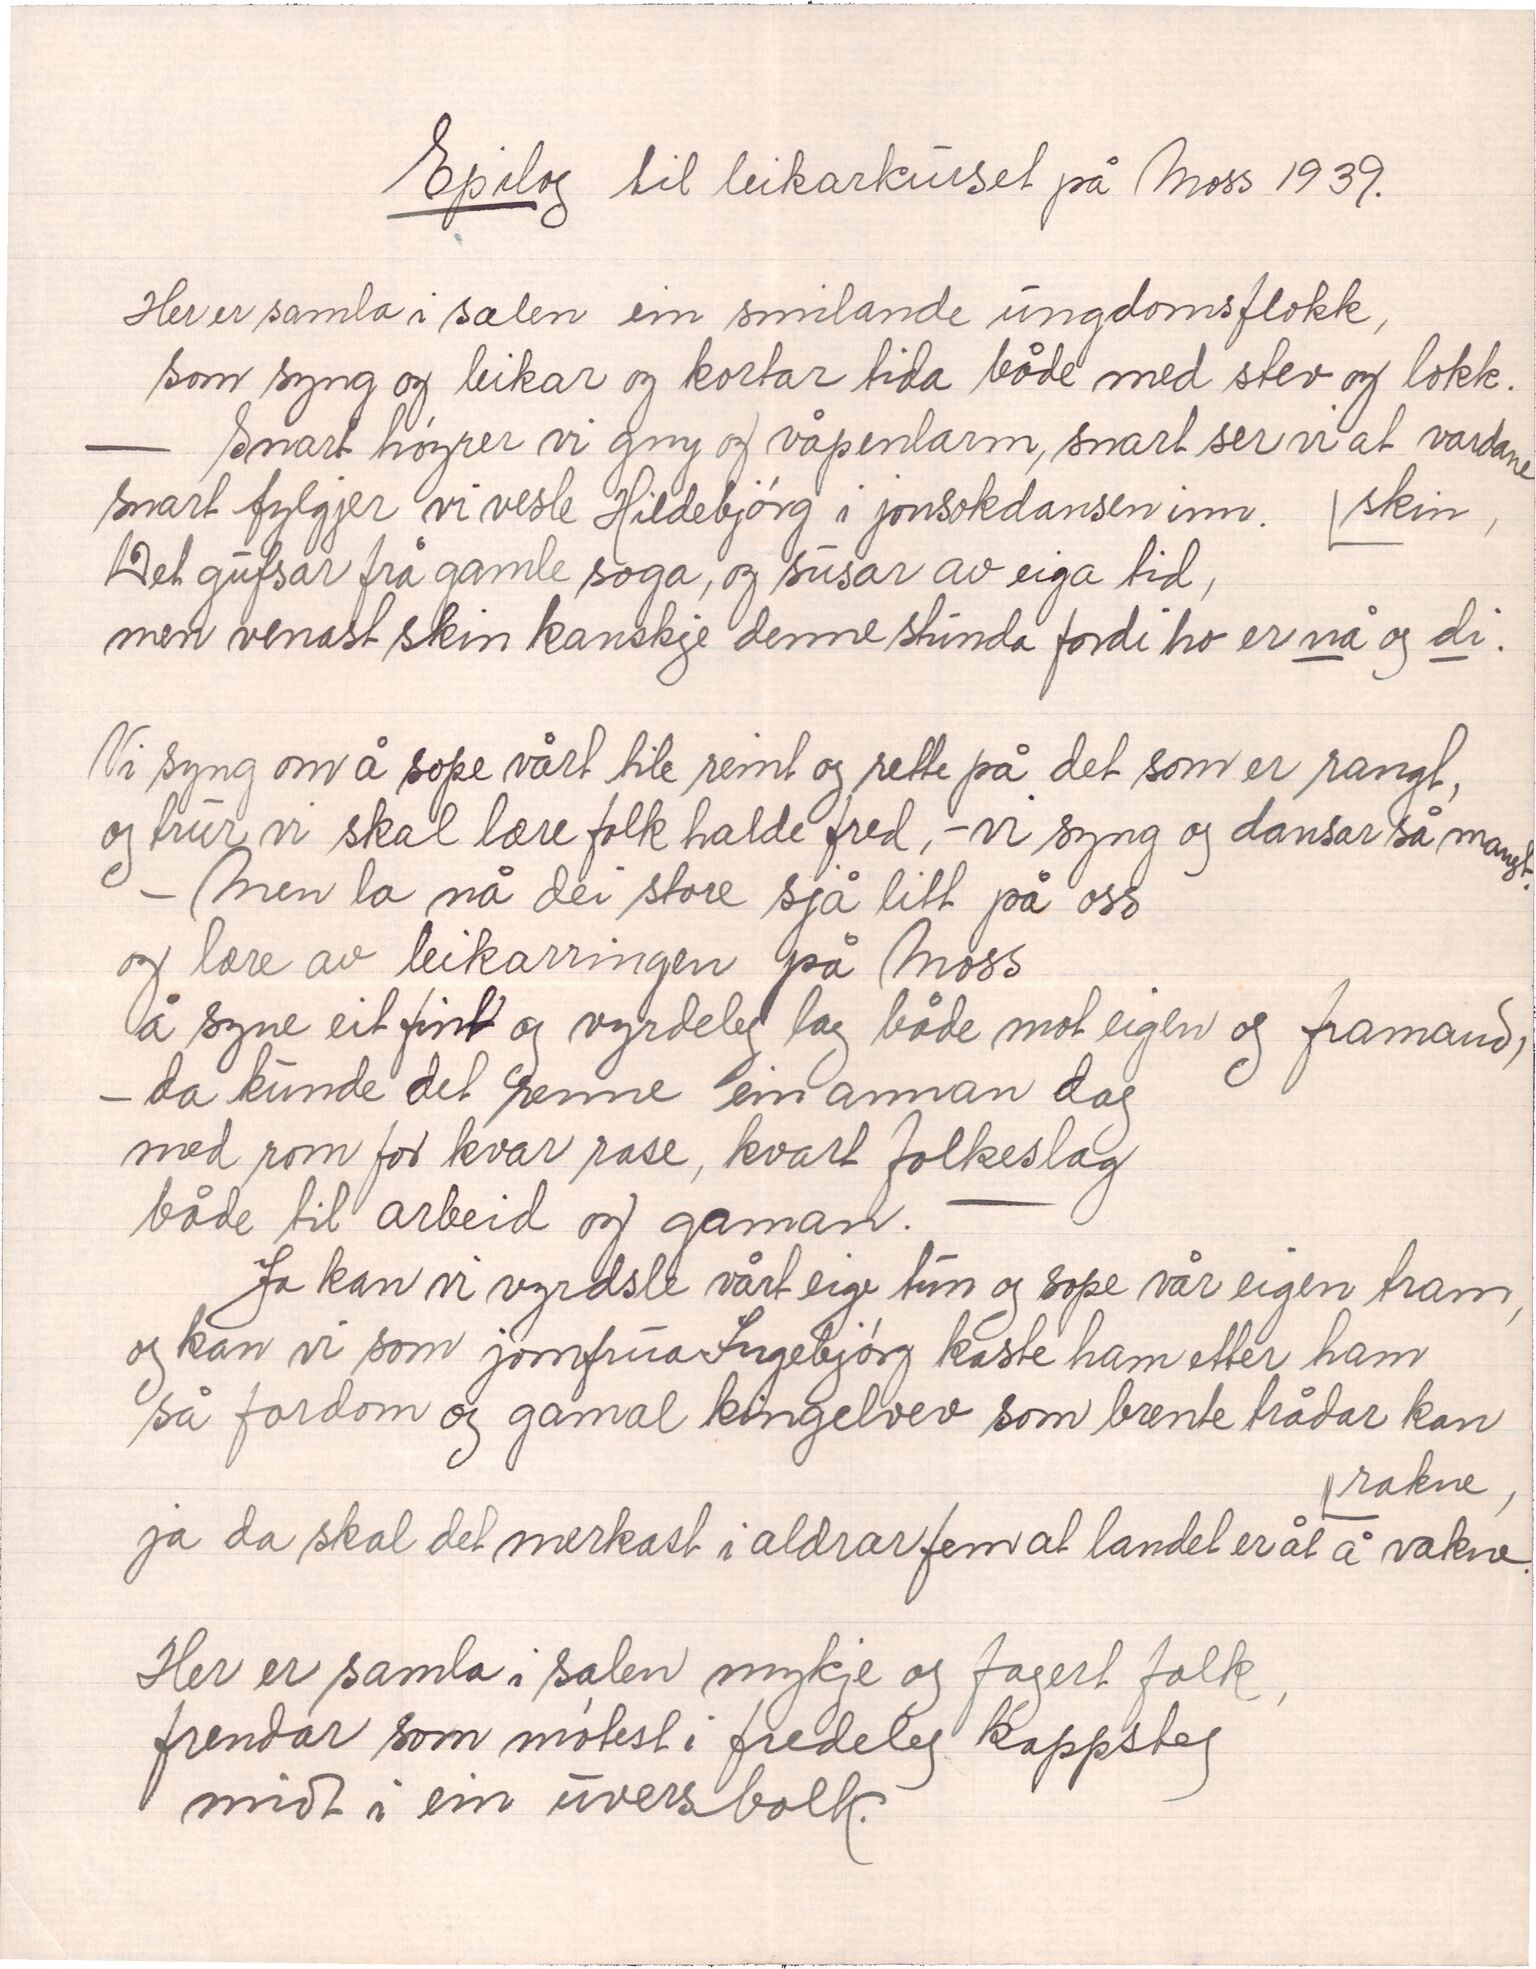 Epilog til leikarkurset på Moss 1939.
Her er samla i salen ein smilande ungdomsflokk,
som syng og leikar og kortar tida både med stev og lokk.
— Snart høyrer vi gny og våpenlarm, snart ser vi at vardane
snart fylgjer vi vesle Hildebjørg i jonsokdansen inn. skin,
Det gufsar frå gamle soga, og susar av eiga tid,
men venast skin kanskje denne stunda fordi ho er nå og di.
Vi syng om å sope vårt tile reint og rette på det som er rangt,
og trur vi skal lære folk halde fred, - vi syng og dansar så mangt.
- Men la nå dei store sjå litt på oss
og lære av leikarringen på Moss
å syne eit fint og vyrdeleg lag både mot eigen og framand,
- da kunde det renne ein annan dag
med rom for kvar rase, kvart folkeslag
både til arbeid og gaman. —
Ja kan vi vyrdsle vårt eige tun og sope vår eigen tram,
og kan vi som jomfrua Ingebjørg kaste ham etter ham
så fordom og gamal kingelvev som brente trådar kan
rakne,
ja da skal det merkast i aldrar fem at landet er åt å vakne.
Her er samla i salen mykje og fagert folk,
frendar som møtest i fredeleg kappsteg
midt i ein uversbolk.